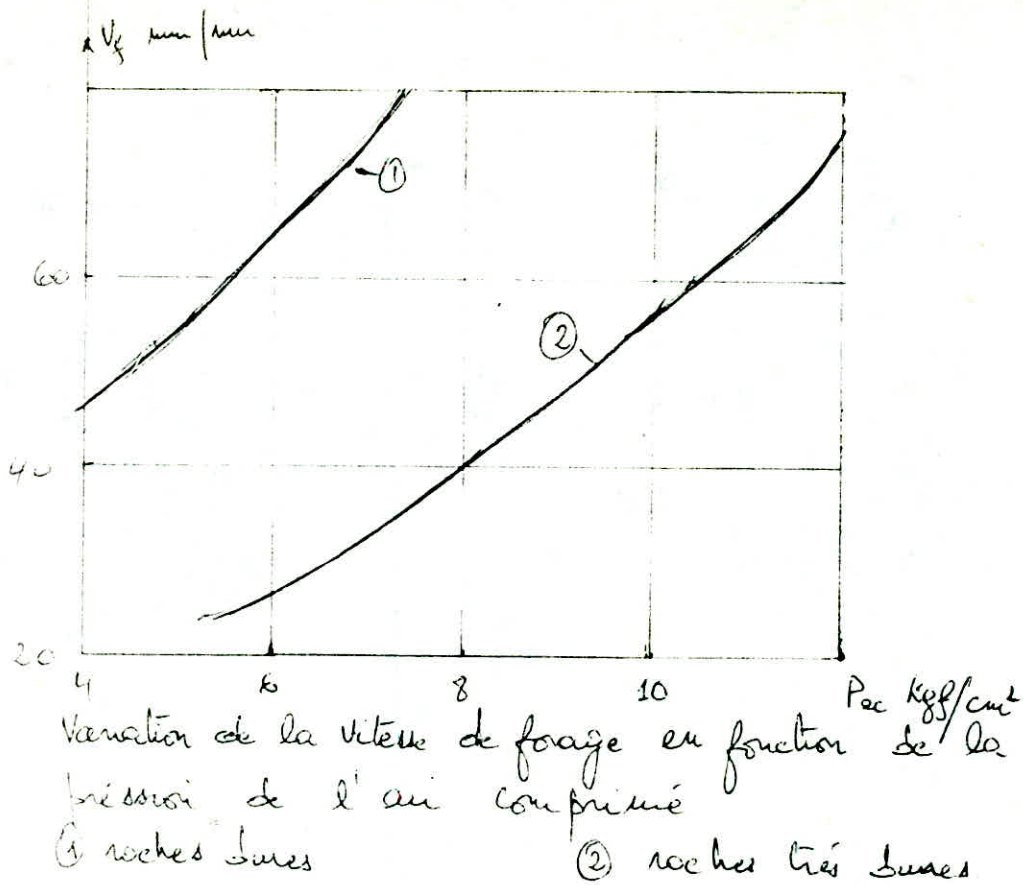 Vf mm/mn
①
60
②
40
20
4 6 8 10 Pac Kgf/cm²
Variation de la vitesse de forage en fonction de la
préssion de l'air comprimé
① roches dures ② roches trés dures